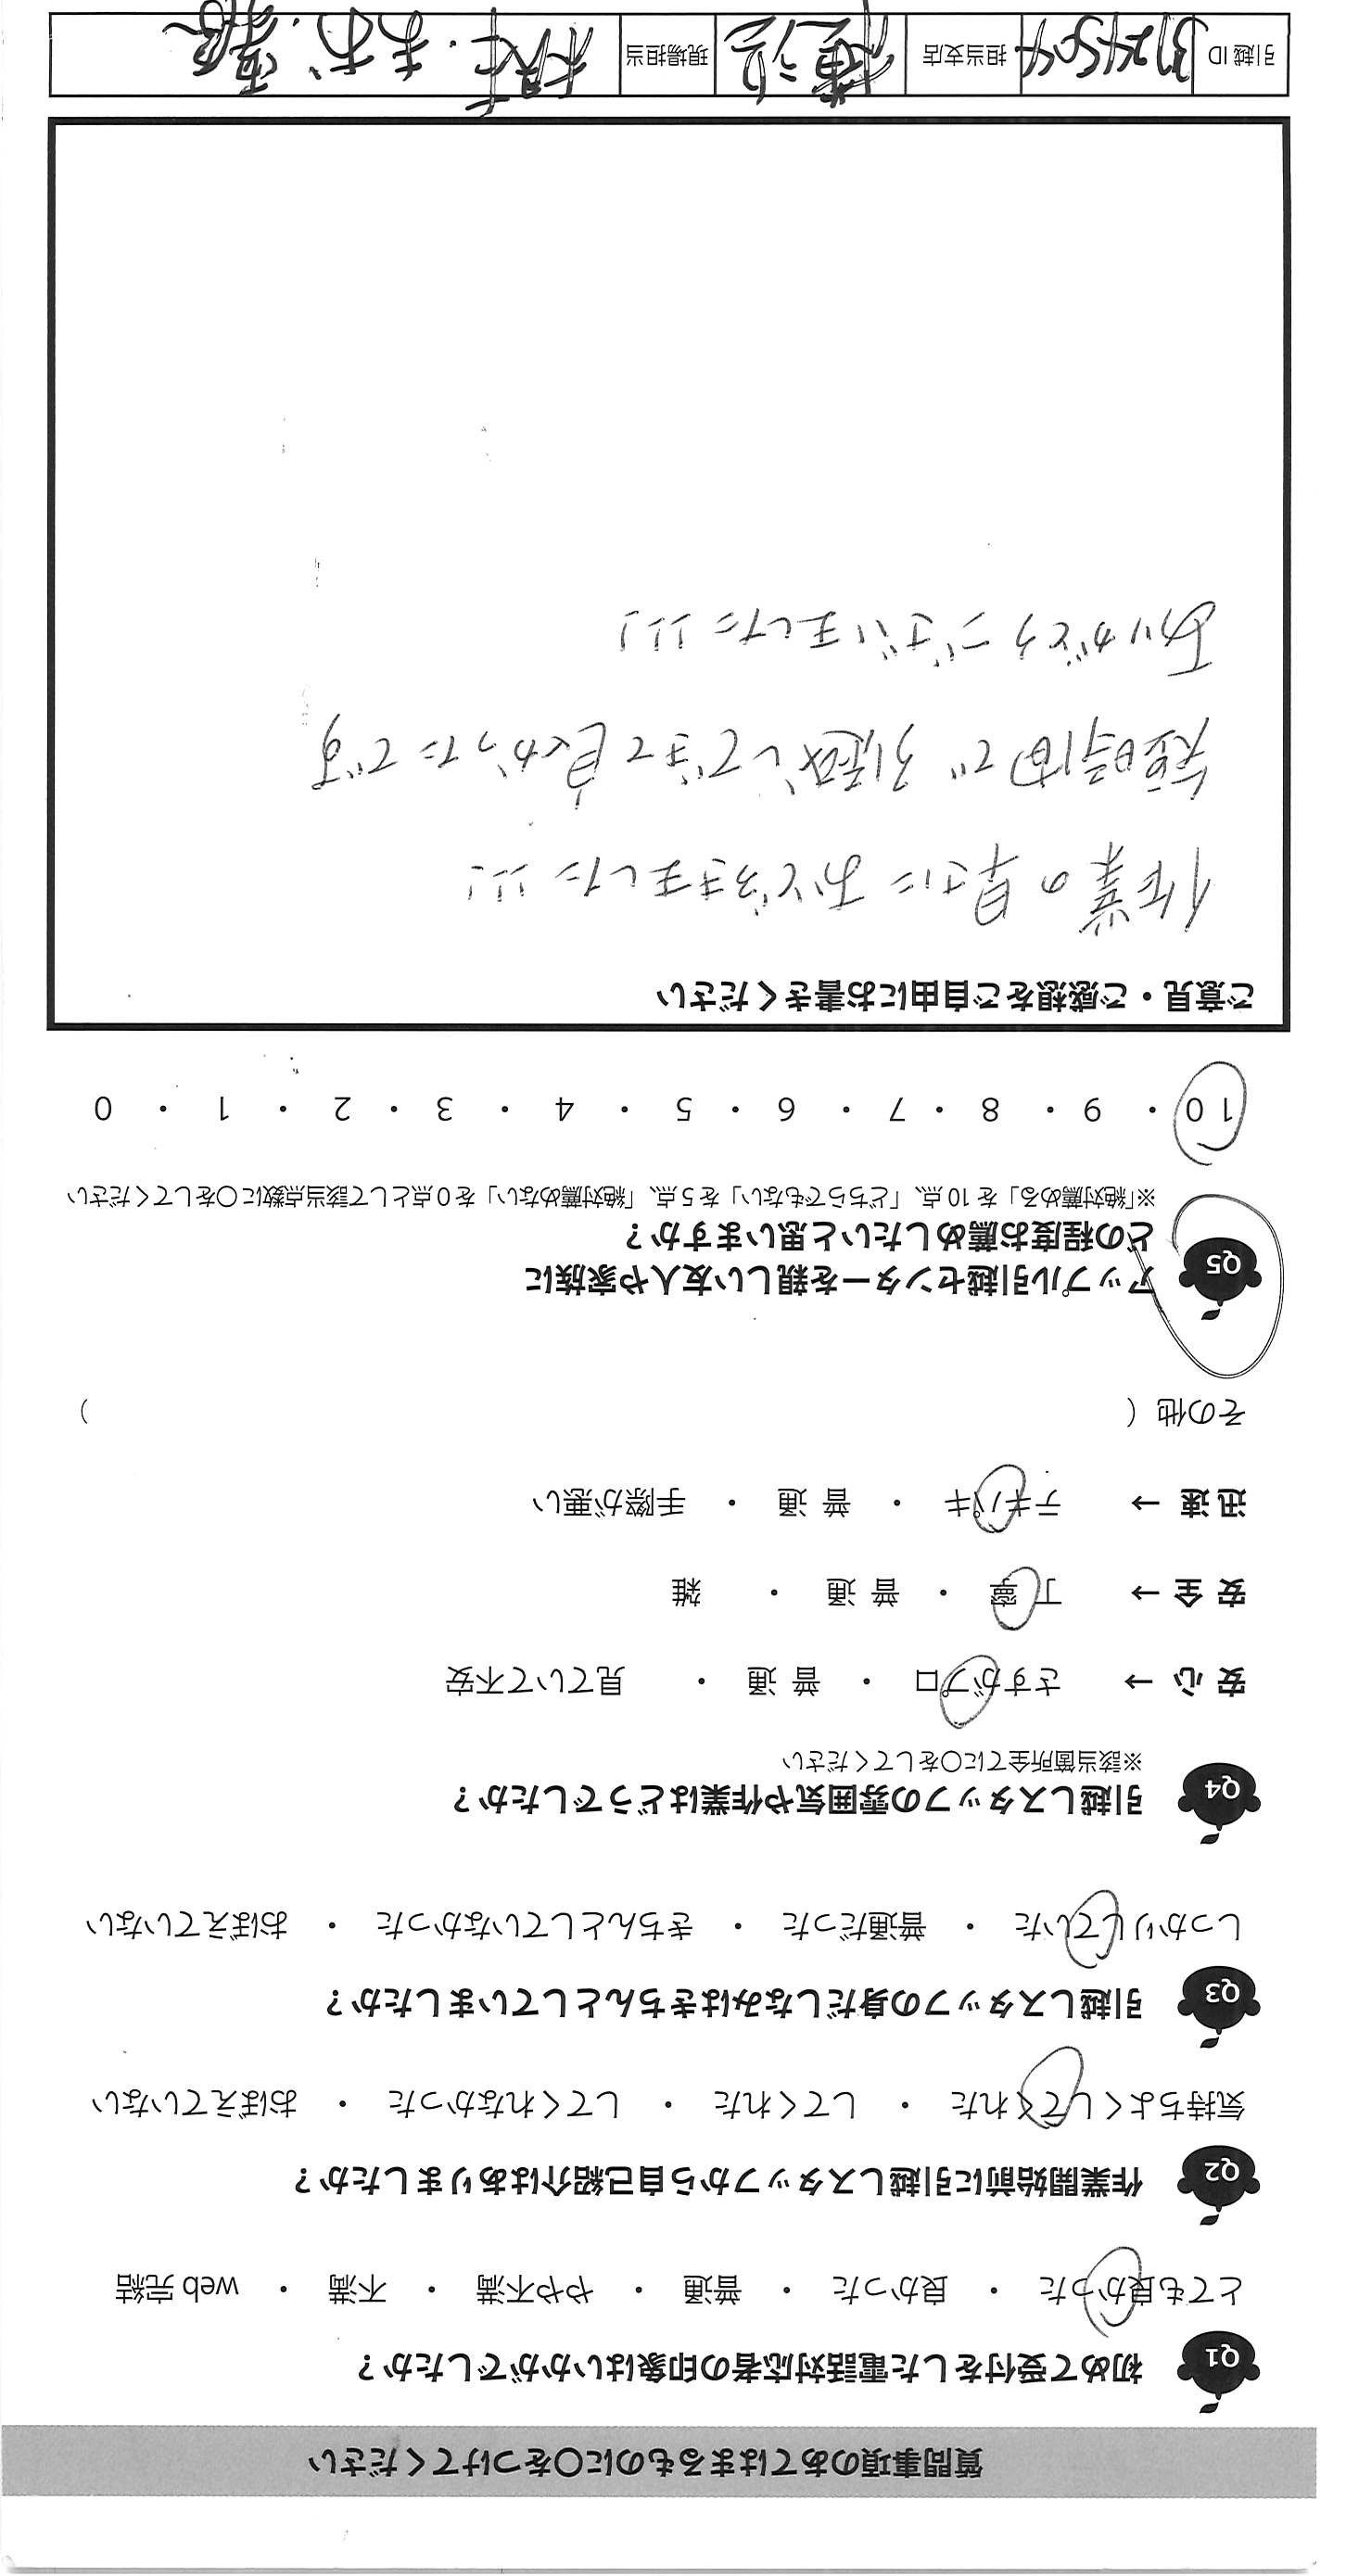 質問事項のあてはまるものに〇をつけてください
Q1 初めて受付をした電話対応者の印象はいかがでしたか？
とても良かった ・ 良かった ・ 普通 ・ やや不満 ・ 不満 ・ web 完結
Q2 作業開始前に引越しスタッフから自己紹介はありましたか？
気持ちよくしてくれた ・ してくれた ・ してくれなかった ・ おぼえていない
Q3 引越しスタッフの身だしなみはきちんとしていましたか？
しっかりしていた ・ 普通だった ・ きちんとしていなかった ・ おぼえていない
Q4 引越しスタッフの雰囲気や作業はどうでしたか？
※該当箇所全てに〇をしてください
安心 → さすがプロ ・ 普通 ・ 見ていて不安
安全 → 丁寧 ・ 普通 ・ 雑
迅速 → テキパキ ・ 普通 ・ 手際が悪い
その他 （ ）
Q5 アップル引越センターを親しい友人や家族に
どの程度お薦めしたいと思いますか？
※「絶対薦める」を 10 点、「どちらでもない」を 5 点、「絶対薦めない」を 0 点として該当点数に〇をしてください
10 ・ 9 ・ 8 ・ 7 ・ 6 ・ 5 ・ 4 ・ 3 ・ 2 ・ 1 ・ 0
ご意見・ご感想をご自由にお書きください
作業の早さにおどろきました!!!
短時間で引越しできて良かったです
ありがとうございました!!!
引越 ID 担当支店 現場担当